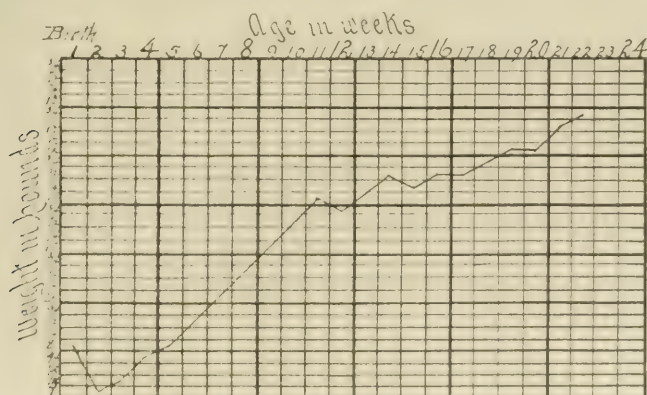 Age in weeks
Birth
1 2 3 4 5 6 7 8 9 10 11 12 13 14 15 16 17 18 19 20 21 22 23 24
Weight in Pounds